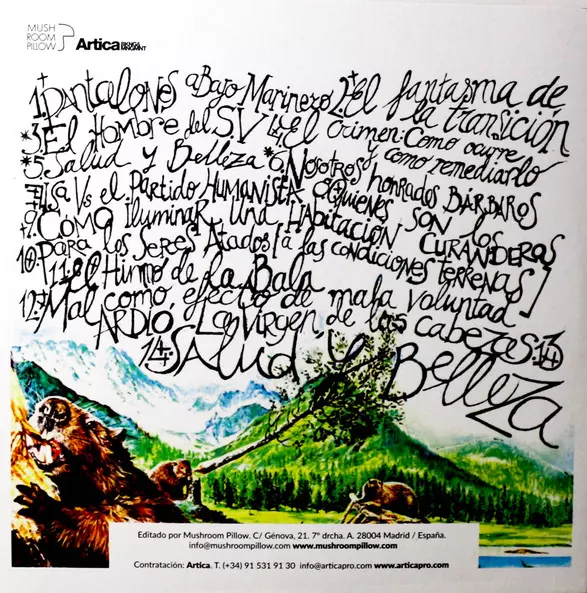 MUSH
ROOM
PILLOW
Artica
1. Pantalones abajo Marinero 2. El fantasma de
la transición
*3. El Hombre del S.V 4. El crimen: Como ocurre
y como remediarlo
*5. Salud y Belleza *6. Nosotros honrados BÁRBAROS
7. ISA Vs el Partido HUMANISTA 8. QUIENES SON los
CURANDERAS
9. COMO ILUMINAR UNA HABITACION
10. Para los Seres Atados [a las condiciones terrenas]
11. El Himno de la Bala
12. Mal como efecto de mala voluntad
13. ARDIÓ LA VIRGEN de las CABEZAS
14. SALUD y BELLEZA
Editado por Mushroom Pillow. C/ Génova, 21. 7º drcha. A. 28004 Madrid / España.
info@mushroompillow.com www.mushroompillow.com
Contratación: Artica. T. (+34) 91 531 91 30 info@articapro.com www.articapro.com